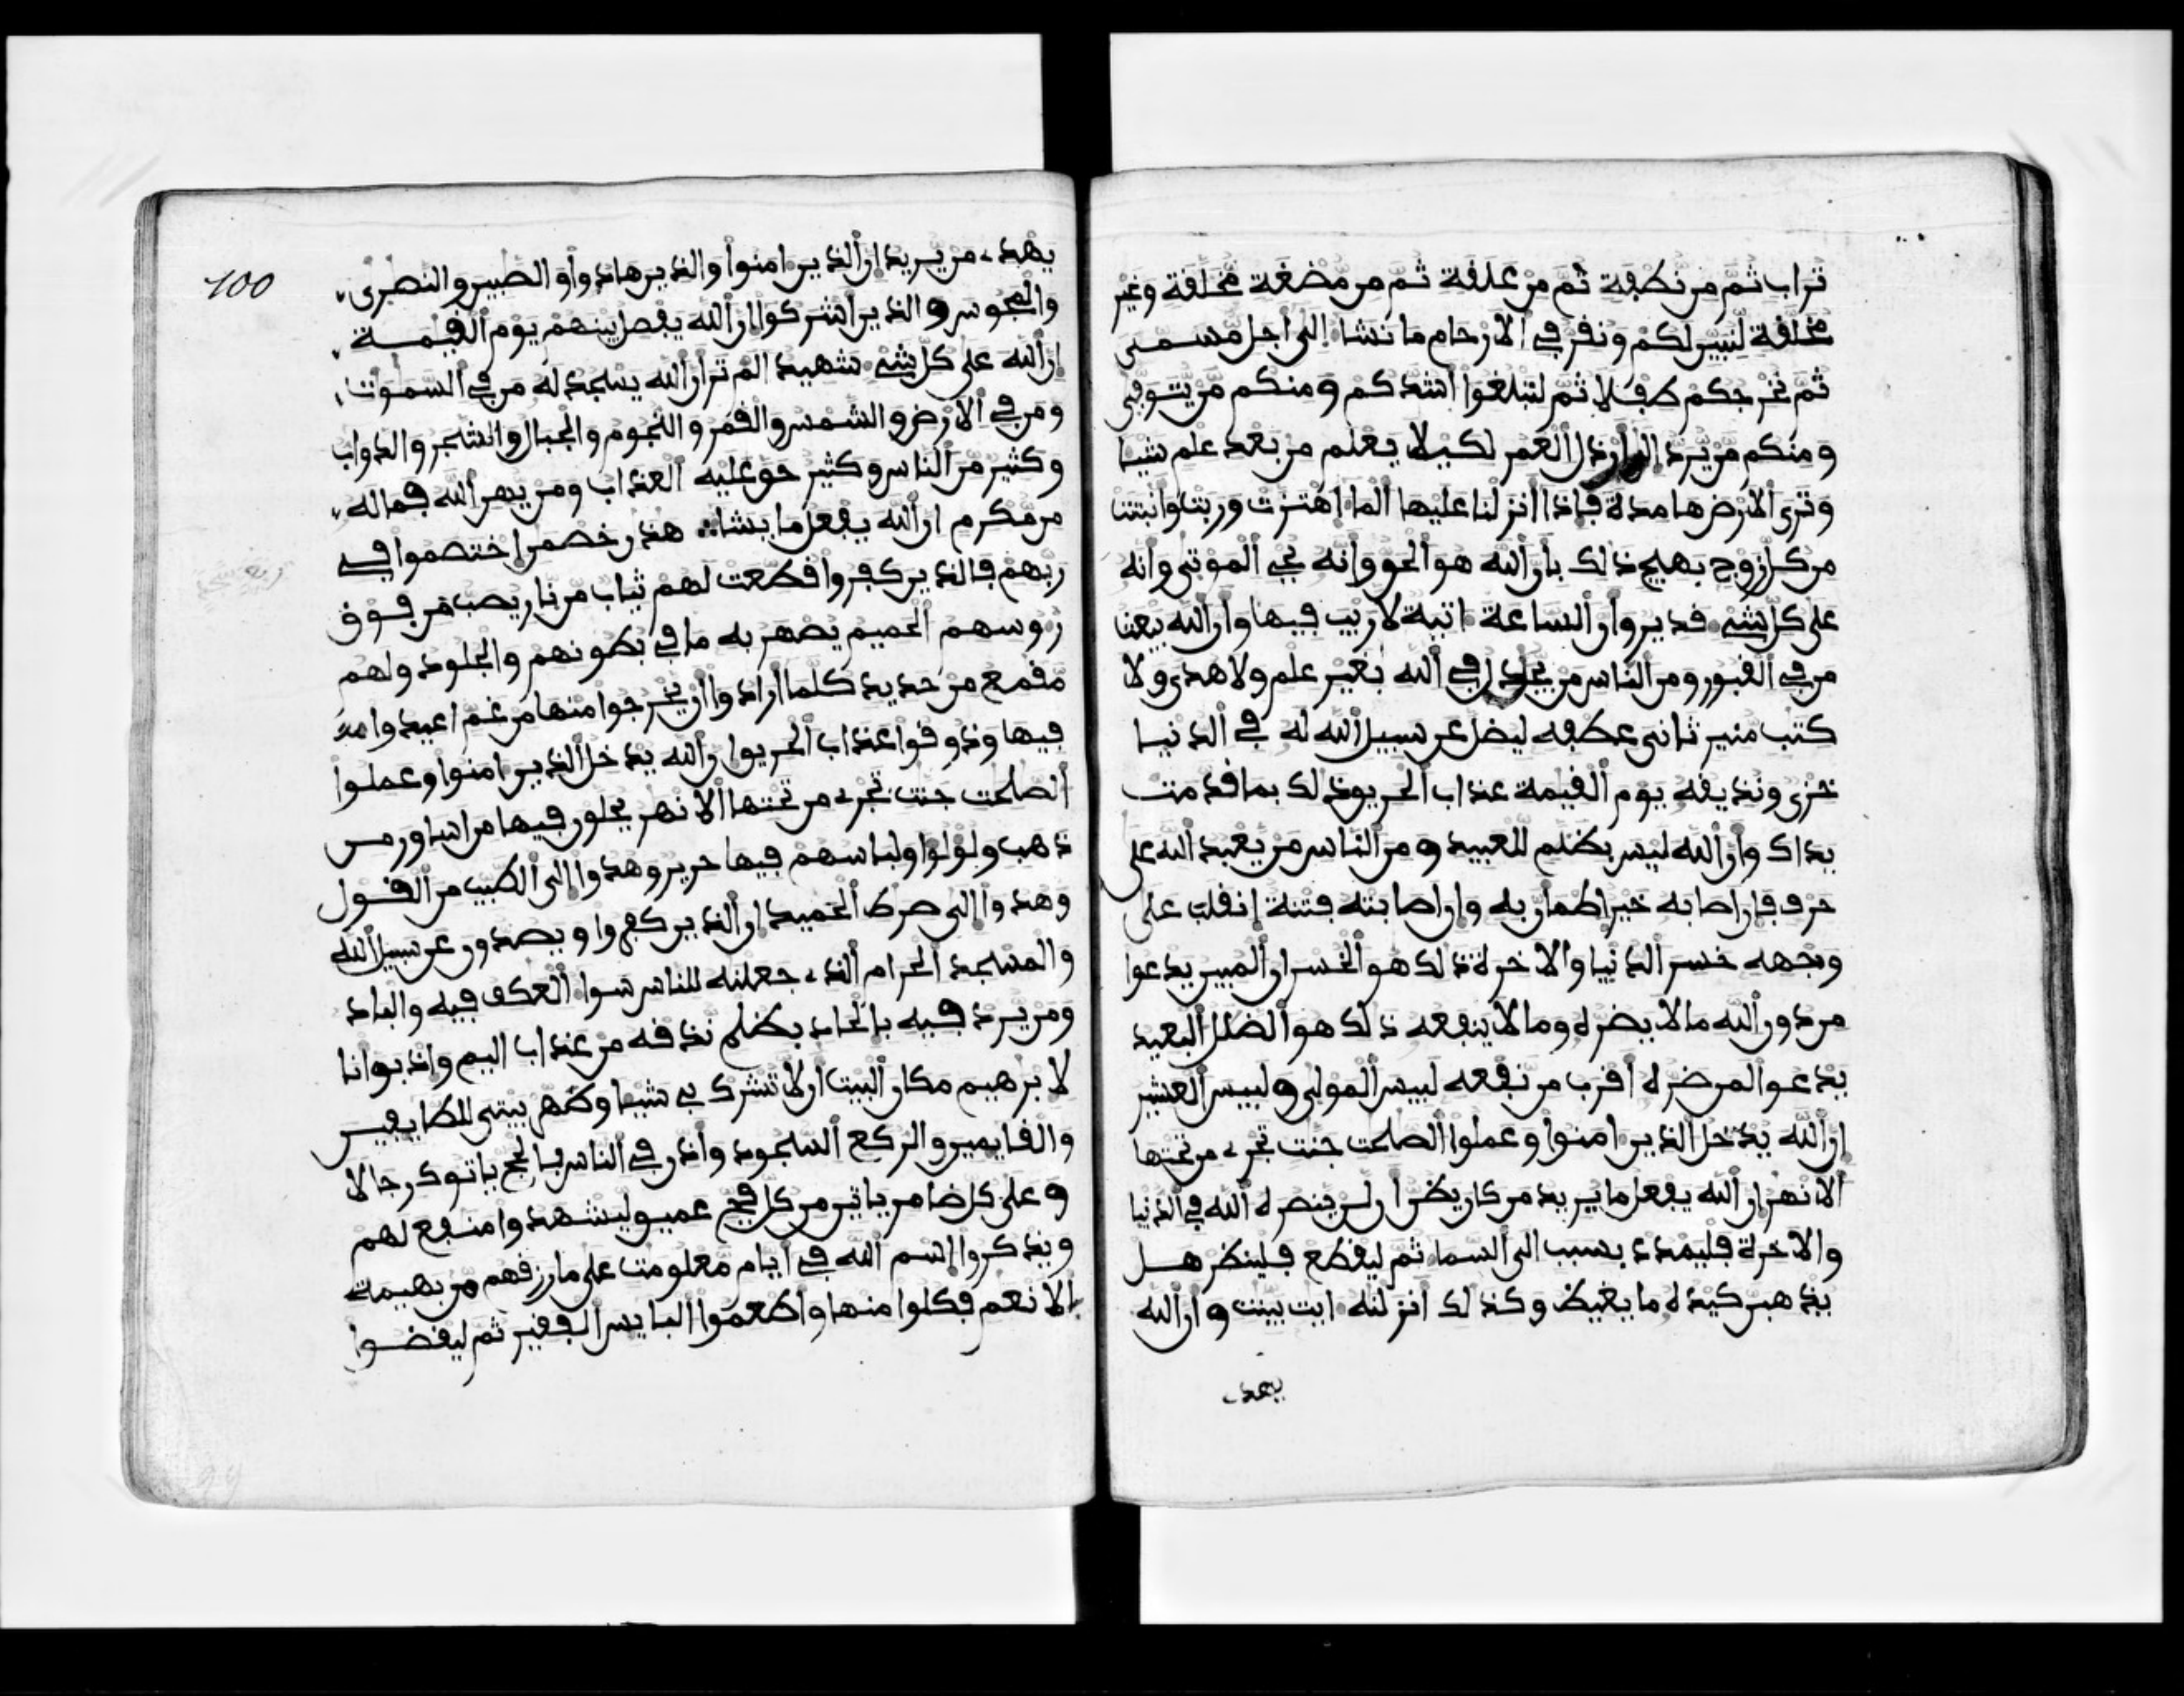 تراب ثم من نطفة ثم من علقة ثم من مضغة مخلقة وغير
مخلقة لنبين لكم ونقر في الارحام ما نشا الى اجل مسمى
ثم نخرجكم طفلا ثم لتبلغوا اشدكم ومنكم من يتوفى
ومنكم من يرد الى ارذل العمر لكيلا يعلم من بعد علم شيا
وترى الارض هامدة فاذا انزلنا عليها الما اهتزت وربت وانبتت
من كل زوج بهيج ذالك بان الله هو الحق وانه يحي الموتى وانه
على كل شي قدير وان الساعة اتية لا ريب فيها وان الله يبعث
من في القبور ومن الناس من يجدل في الله بغير علم ولا هدى ولا
كتب منير ثانى عطفه ليضل عن سبيل الله له في الدنيا
خزى ونذيقه يوم القيمة عذاب الحريق ذلك بما قدمت
يداك وان الله ليس بظلم للعبيد ومن الناس من يعبد الله على
حرف فان اصابه خير اطمان به وان اصابته فتنة انقلب على
وجهه خسر الدنيا والاخرة ذلك هو الخسران المبين يدعوا
من دون الله ما لا يضره وما لا ينفعه ذلك هو الضلل البعيد
يدعوا لمن ضره اقرب من نفعه لبيس المولى ولبيس العشير
ان الله يدخل الذين امنوا وعملوا الصلحت جنت تجرے من تحتها
الانهر ان الله يفعل ما يريد من كان يظن ان لن ينصره الله في الدنيا
والاخرة فليمدد بسبب الى السما ثم ليقطع فلينظر هل
يذهبن كيده ما يغيظ وكذلك انزلنه ايت بينت وان الله
يهدے
100
يهدے من يريد ان الذين امنوا والذين هادوا والصبين والنصرى
والمجوس والذين اشركوا ان الله يفصل بينهم يوم القيمة
ان الله على كل شي شهيد الم تر ان الله يسجد له من في السموت
ومن في الارض والشمس والقمر والنجوم والجبال والشجر والدواب
وكثير من الناس وكثير حق عليه العذاب ومن يهن الله فما له
من مكرم ان الله يفعل ما يشا هذن خصمن اختصموا في
ربهم فالذين كفروا قطعت لهم ثياب من نار يصب من فوق
روسهم الحميم يصهر به ما في بطونهم والجلود ولهم
مقمع من حديد كلما ارادوا ان يخرجوا منها من غم اعيدوا
فيها وذوقوا عذاب الحريق ان الله يدخل الذين امنوا وعملوا
الصلحت جنت تجرے من تحتها الانهر يحلون فيها من اساور من
ذهب ولولوا ولباسهم فيها حرير وهدوا الى الطيب من القول
وهدوا الى صرط الحميد ان الذين كفروا ويصدون عن سبيل الله
والمسجد الحرام الذے جعلنه للناس سوا العكف فيه والباد
ومن يرد فيه بالحاد بظلم نذقه من عذاب اليم واذ بوانا
لابرهيم مكان البيت ان لا تشرك بي شيا وطهر بيتى للطايفين
والقايمين والركع السجود واذن في الناس بالحج ياتوك رجالا
وعلى كل ضامر ياتين من كل فج عميق ليشهدوا منفع لهم
ويذكروا اسم الله في ايام معلومت على ما رزقهم من بهيمة
الانعم فكلوا منها واطعموا البايس الفقير ثم ليقضوا